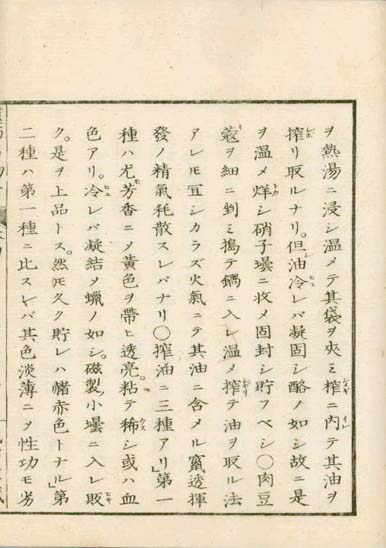 ヲ熱湯ニ浸シ温メテ其袋ヲ夾ミ搾ニ内テ其油ヲ
搾リ取ルナリ。但油冷レバ凝固シ酪ノ如シ故ニ是
ヲ温メ烊シ硝子壜ニ收メ固封シ貯フベシ○肉豆
蔻ヲ細ニ剉ミ搗テ鍋ニ入レ温メ搾テ油ヲ取ル法
アレ𪜈宜シカラズ火氣ニテ其油ニ含メル竄透揮
發ノ精氣耗散スレバナリ○搾油ニ三種アリ」第一
種ハ尤芳香ニ〆黃色ヲ帶ヒ透亮。粘テ稀シ或ハ血
色アリ。冷レバ凝結ヲ蠟ノ如シ。磁製小壜ニ入レ䀋
ク。是ヲ上品トス。然𪜈久ク貯レハ赭赤色トナル」第
二種ハ第一種ニ比スレバ其色淡薄ニ〆性功モ劣